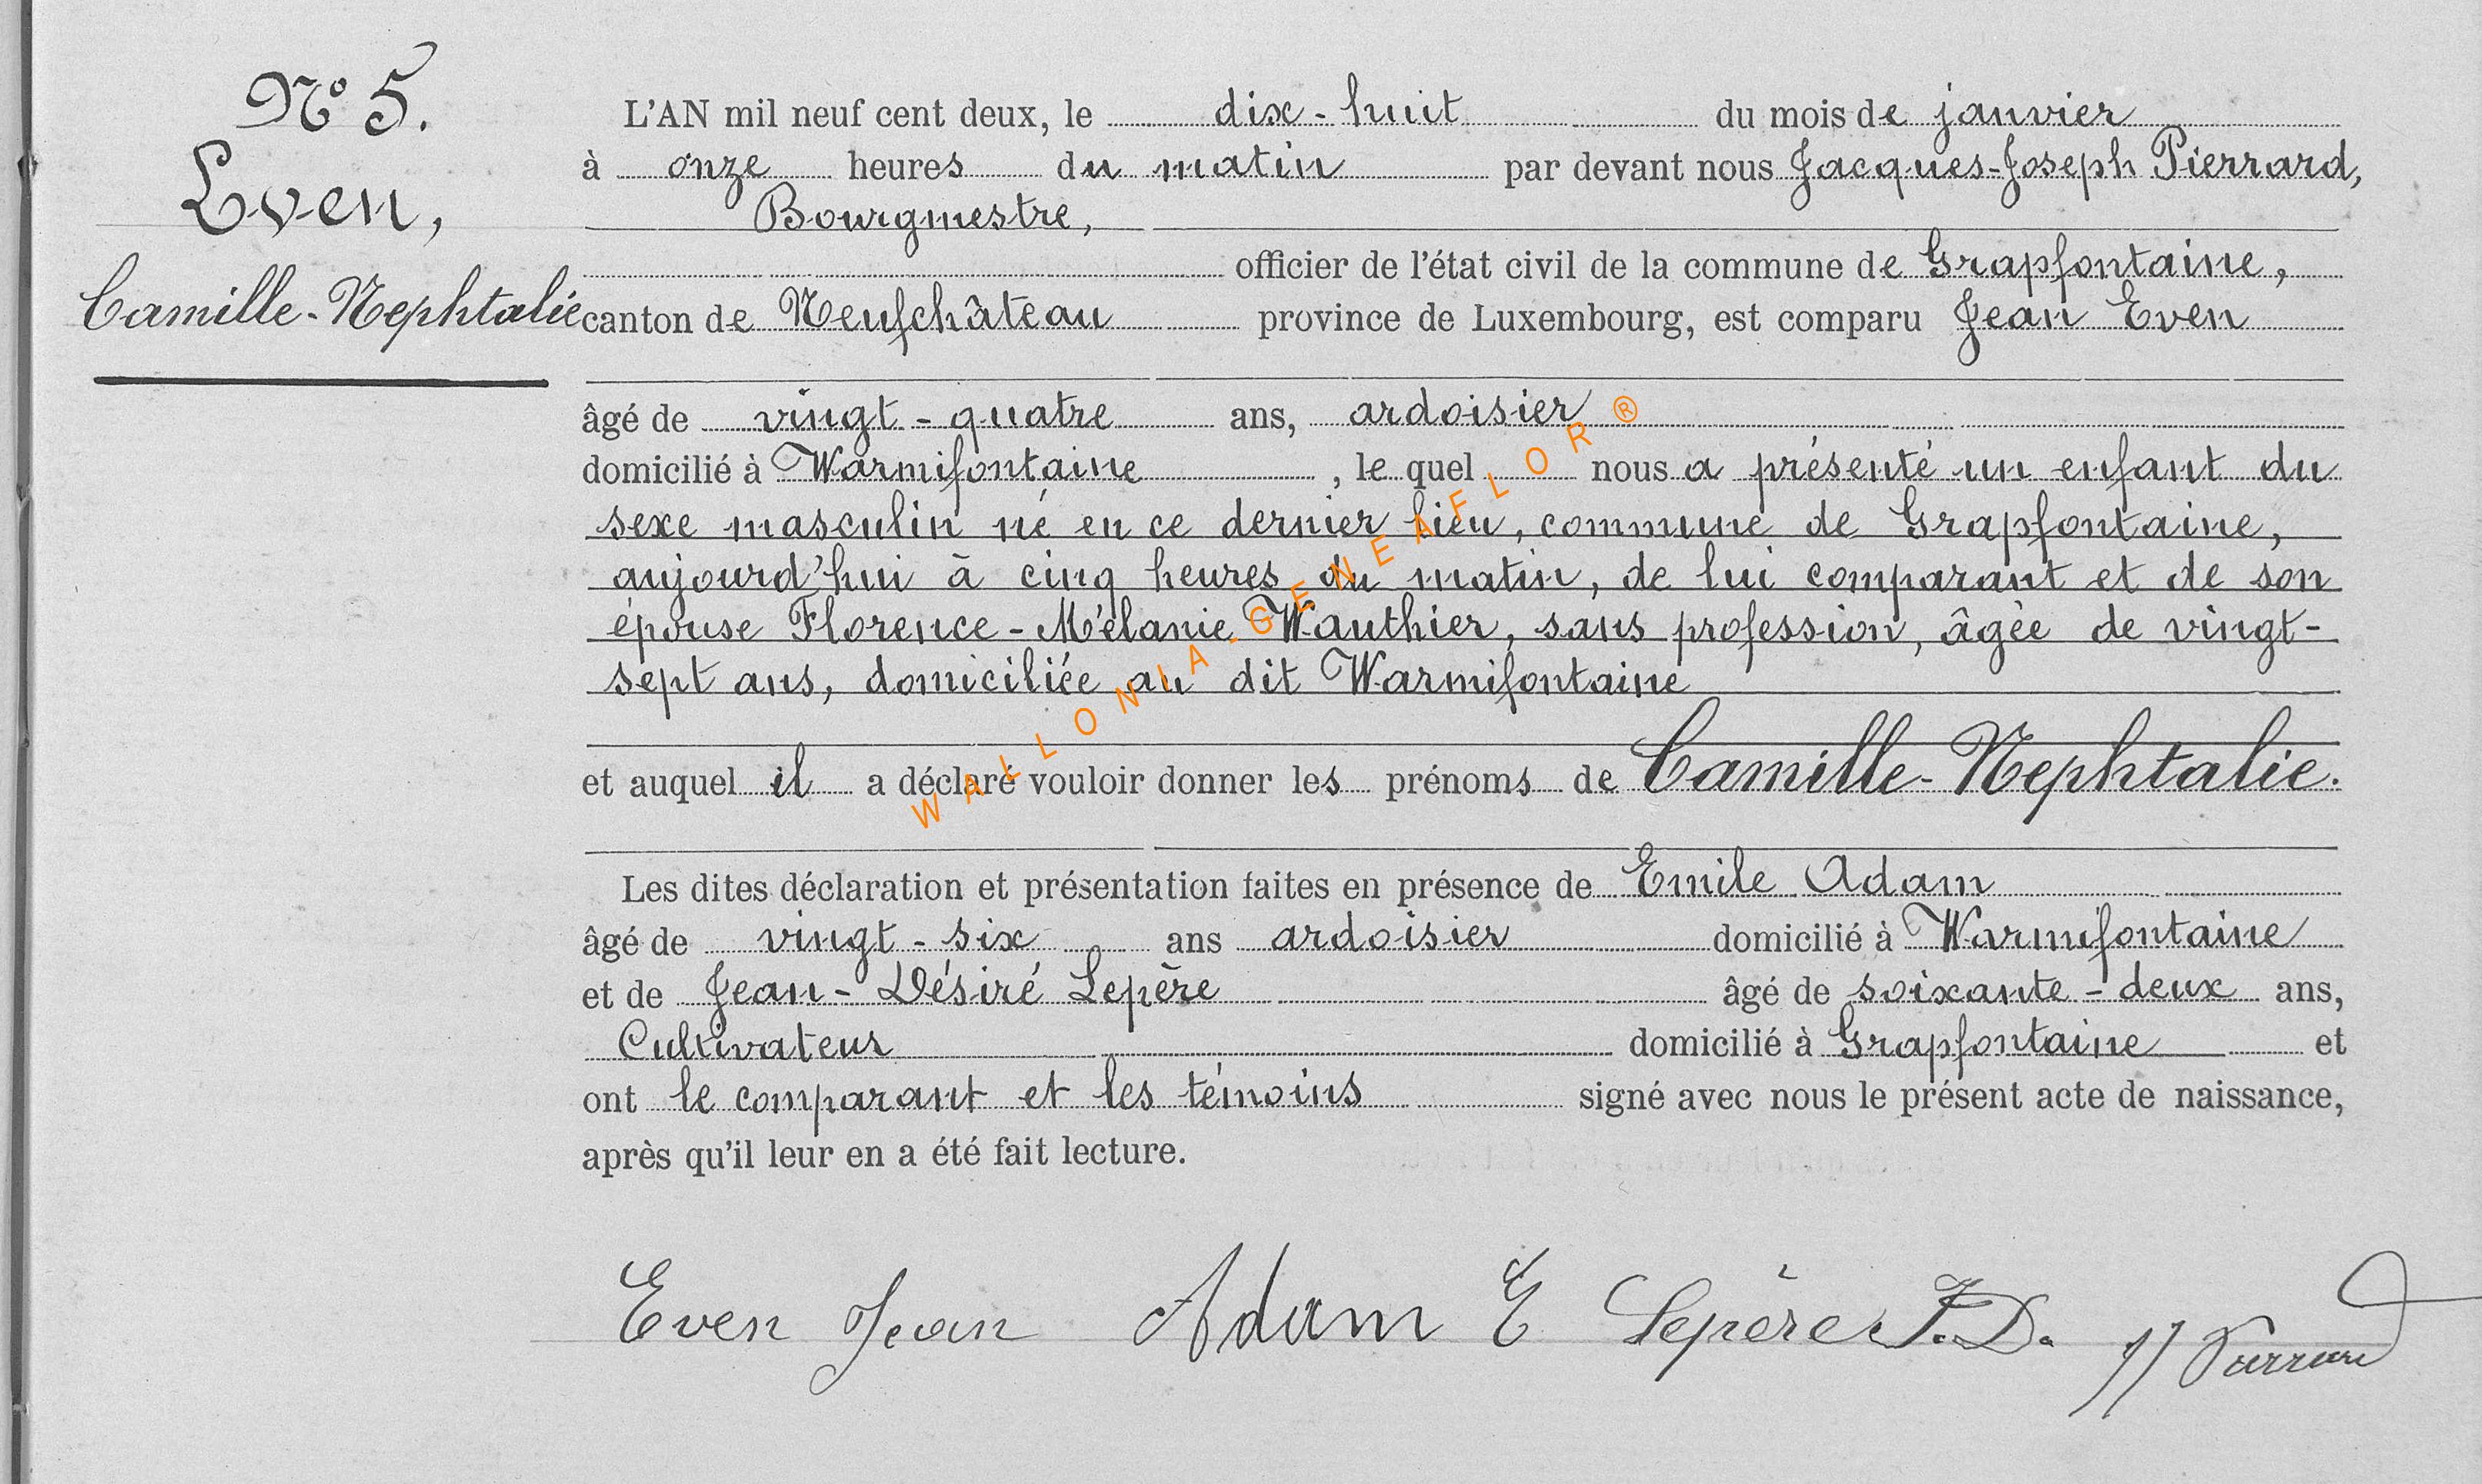 N° 5.
Even,
Camille-Nephtalie
L'AN mil neuf cent deux, le dix-huit du mois de janvier
à onze heures du matin par devant nous Jacques-Joseph Pierrard,
Bourgmestre,
officier de l'état civil de la commune de Grapfontaine,
canton de Neufchâteau province de Luxembourg, est comparu Jean Even
âgé de vingt-quatre ans, ardoisier
domicilié à Warmifontaine, le quel nous a présenté un enfant du
sexe masculin né en ce dernier lieu, commune de Grapfontaine,
aujourd'hui à cinq heures du matin, de lui comparant et de son
épouse Florence-Mélanie Wauthier, sans profession, âgée de vingt-
sept ans, domiciliée au dit Warmifontaine
et auquel il a déclaré vouloir donner les prénoms de Camille-Nephtalie.
Les dites déclaration et présentation faites en présence de Emile Adam
âgé de vingt-six ans ardoisier domicilié à Warmifontaine
et de Jean-Désiré Lepère âgé de soixante-deux ans,
Cultivateur domicilié à Grapfontaine et
ont le comparant et les témoins signé avec nous le présent acte de naissance,
après qu'il leur en a été fait lecture.
Even Jean Adam E Lepère J.D. JJ Pierrard
WALLONIA-GENEAFLOR®